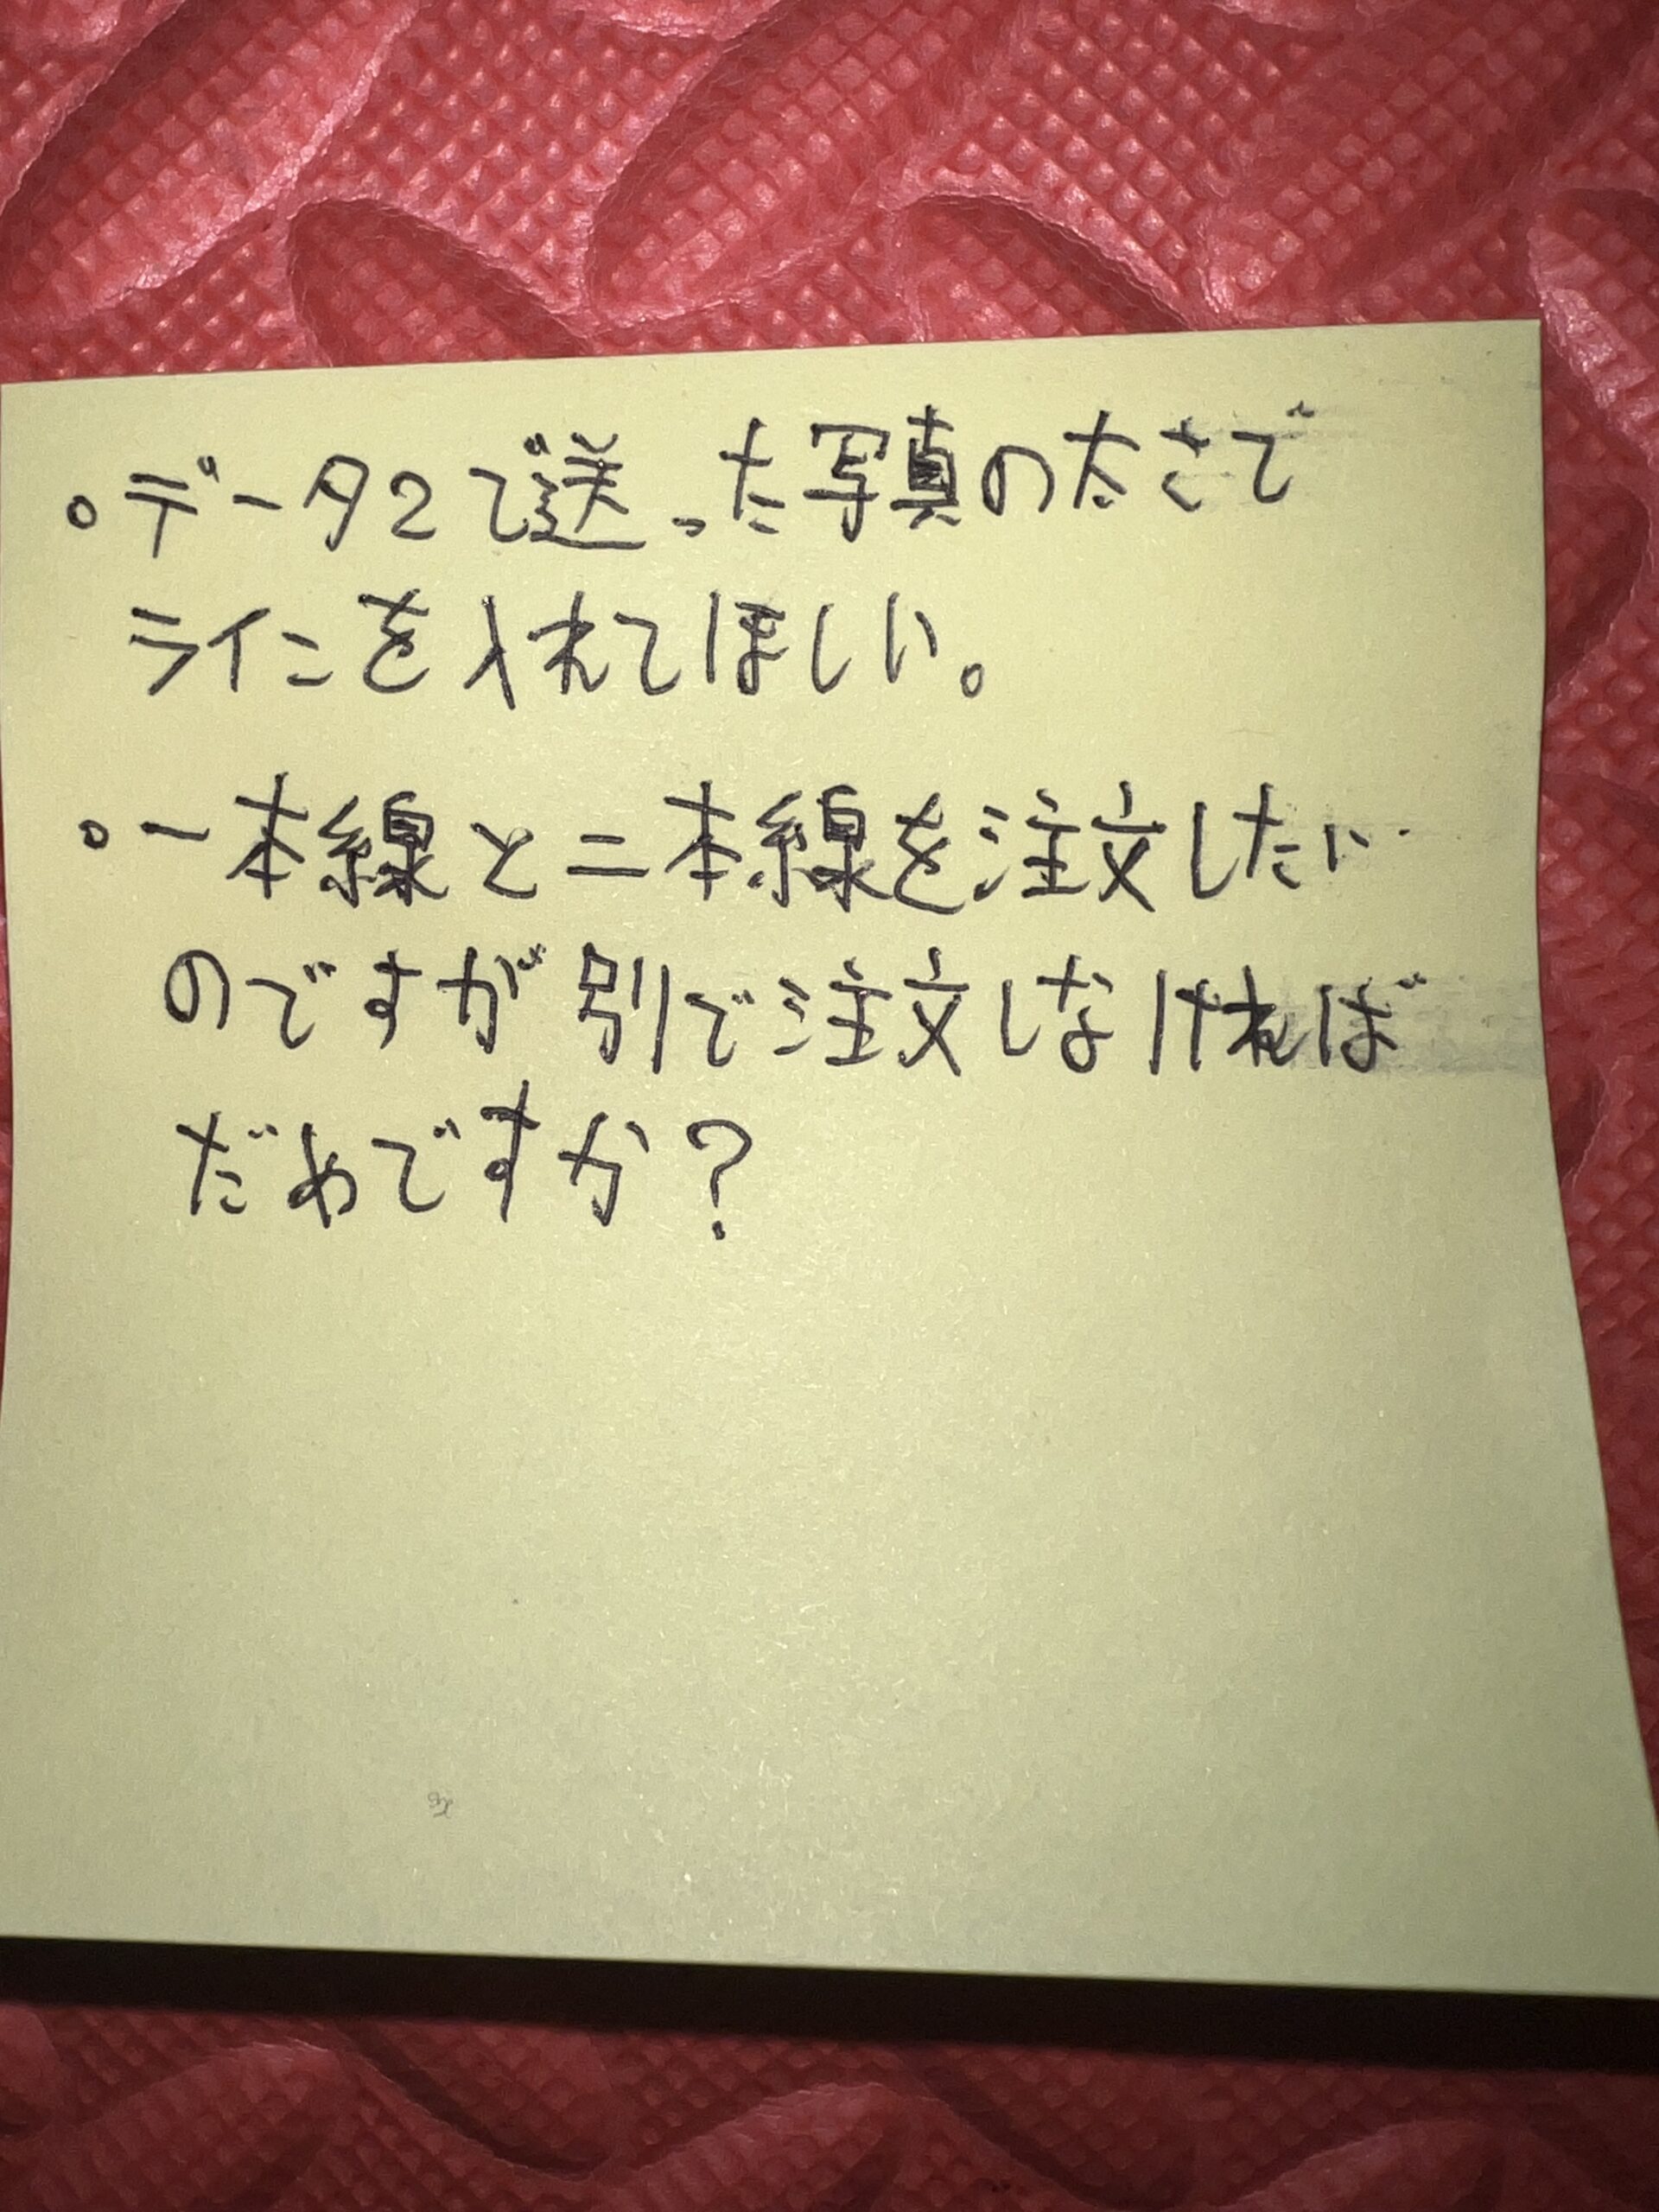 。データ2で送った写真の太さで
ラインを入れてほしい。
。一本線と二本線を注文したい
のですが別で注文しなければ
だめですか?